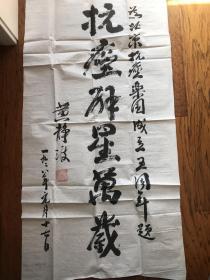 为北京抗癌乐园成立五周年题
抗癌群星万岁
黄静波
一九九五年元月十六日